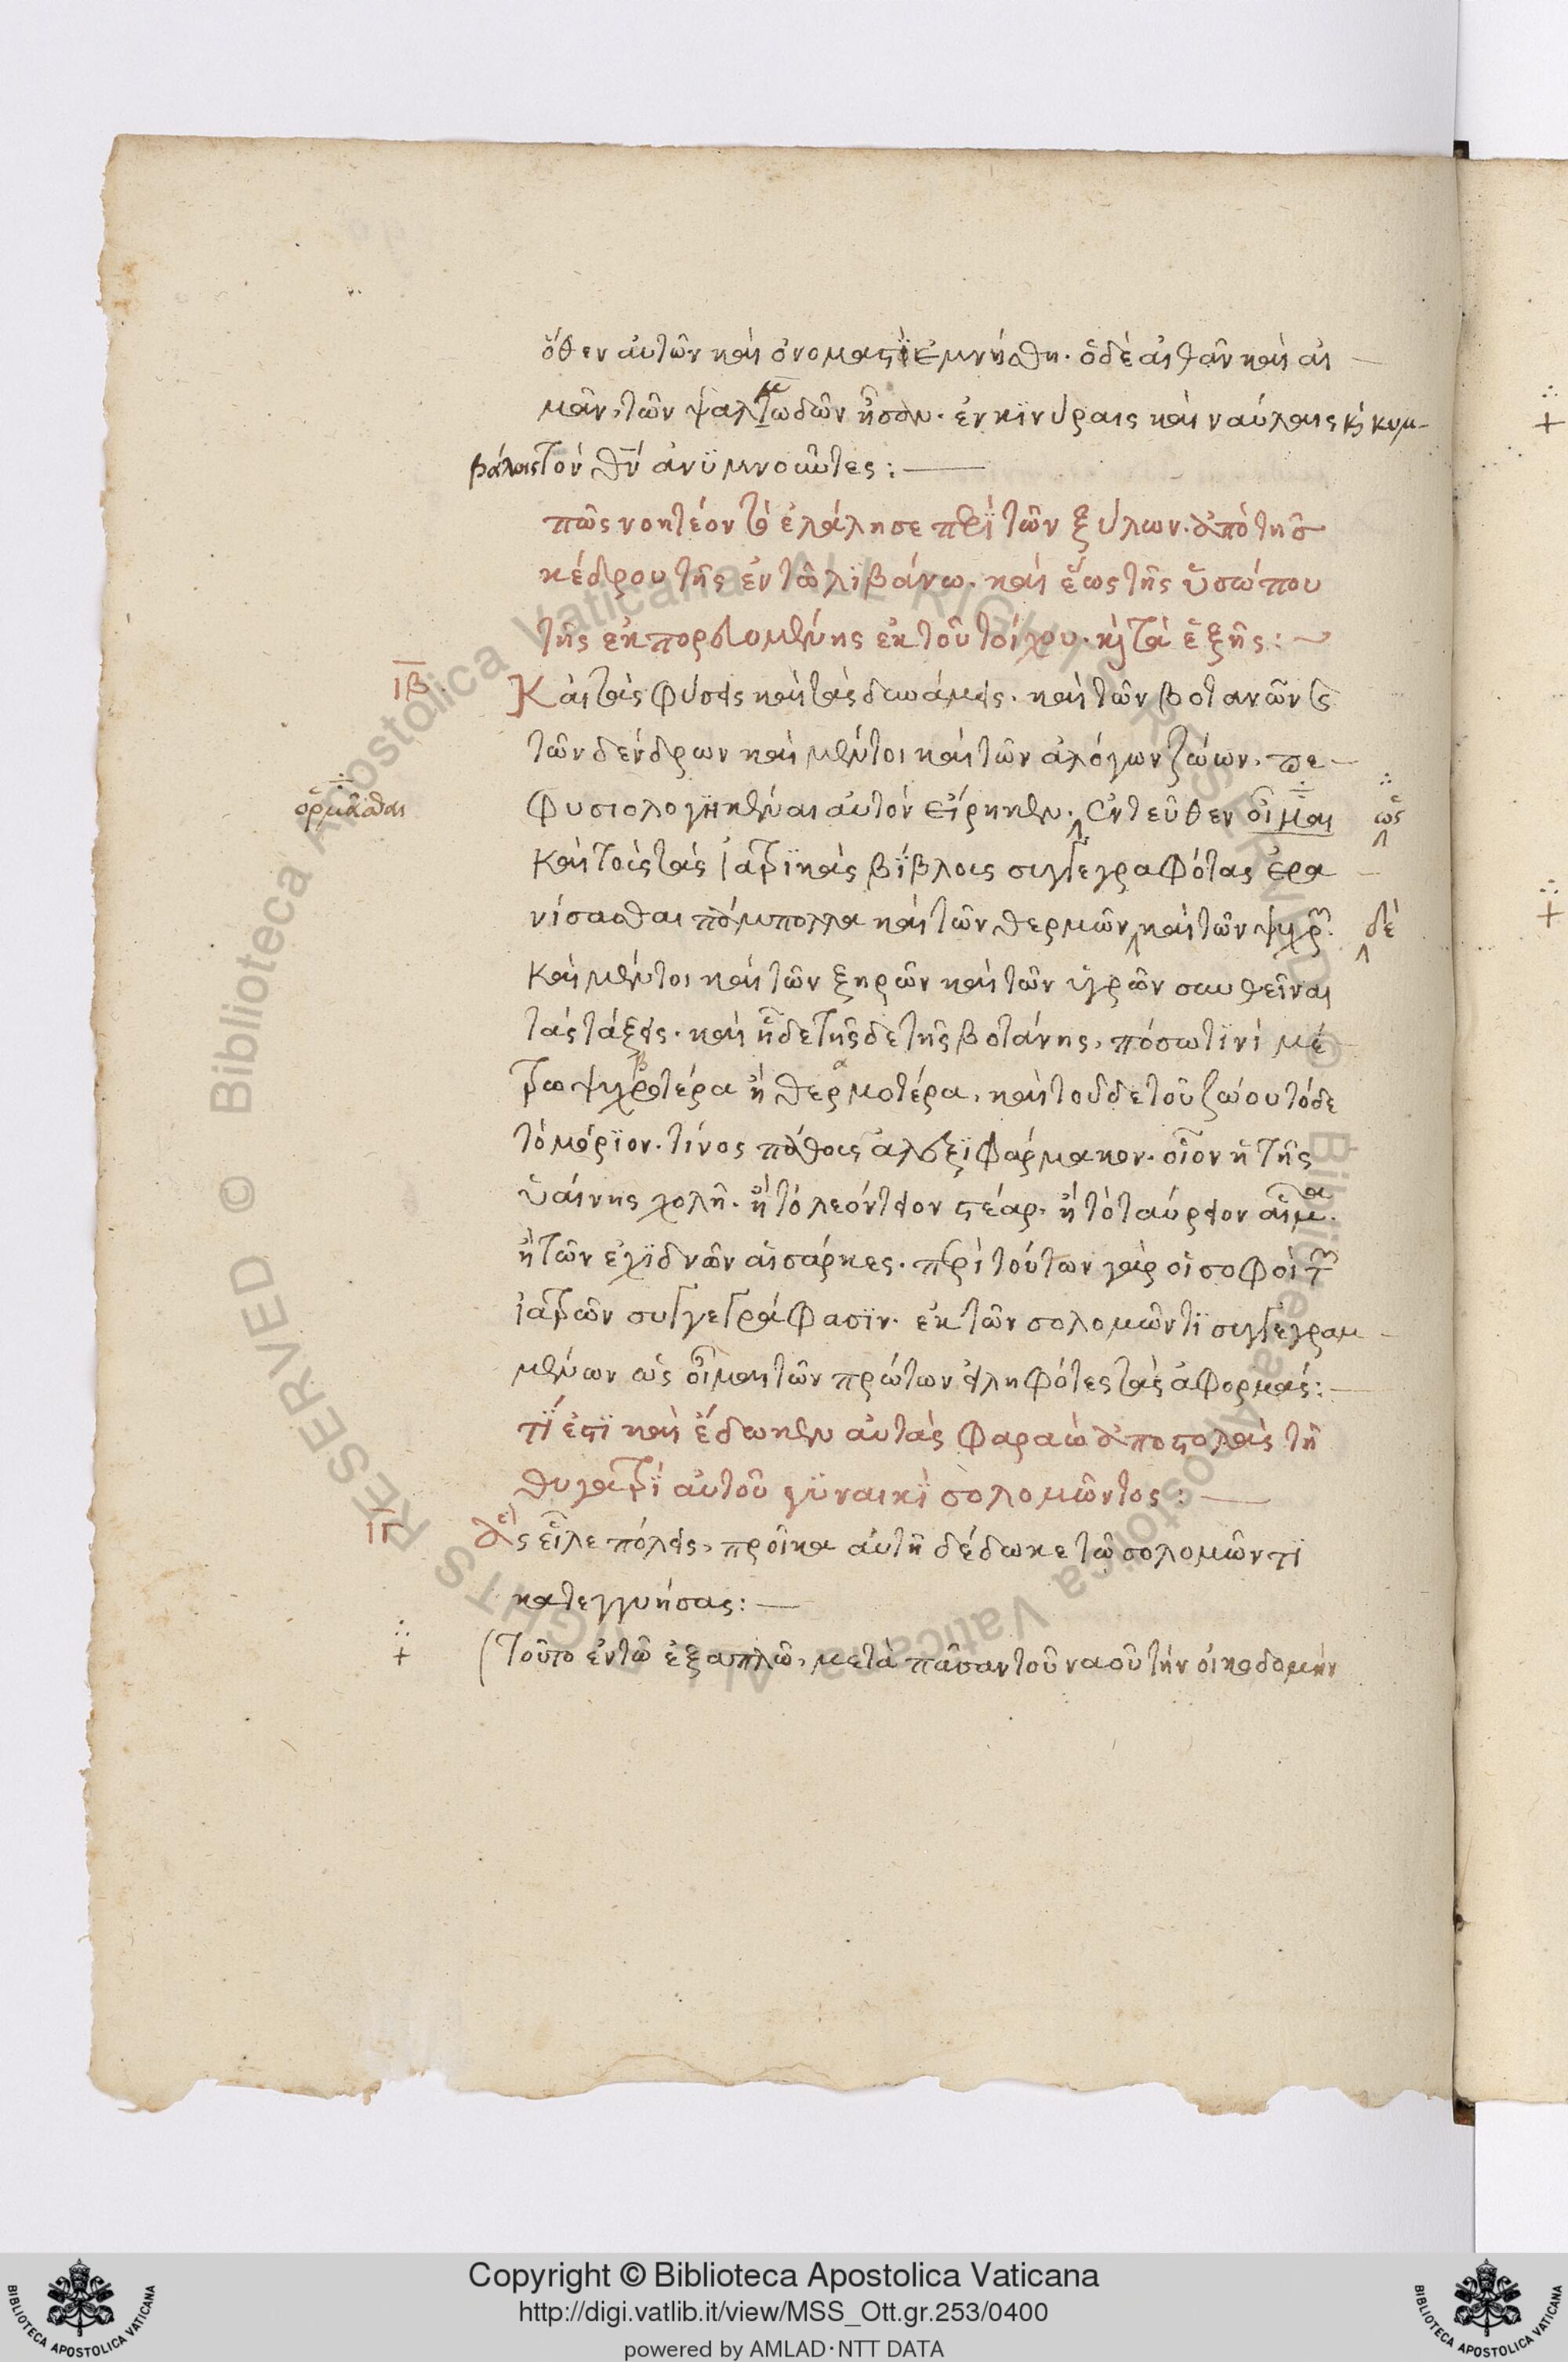 ὅθεν αὐτῶν καὶ ὀνομαστὶ ἐμνήσθη. ὁ δὲ αἰθὰν καὶ αἱ
μὰν, τῶν ψαλτωδῶν ἦσαν. ἐν κϊνύραις καὶ ναύλαις κ κυμ-
βάλοις τὸν θν ἀνϋμνοῦντες:
πῶς νοητέον τὸ ἐλάλησε περὶ τῶν ξύλων. ἀπὸ τῆς
κέδρου τῆς ἐν τῶ λϊβάνω. καὶ ἕως τῆς ὑσώπου
τῆς ἐκπορευομένης ἐκ τοῦ τοίχου. κ τὰ ἑξῆς:
ΙΒ
Καὶ τὰς φύσεις καὶ τὰς δυνάμεις. καὶ τῶν βοτανῶν κ
τῶν δένδρων καὶ μέντοι καὶ τῶν ἀλόγων ζώων. πε-
ὁρμᾶσθαι
φυσιολογηκέναι αὐτὸν εἴρηκεν. ἐντεῦθεν οἶμαι ὡς
καὶ τοὺς τὰς ἰατρϊκὰς βίβλους συγγεγραφότας ἐρα
νίσασθαι πάμπολλα καὶ τῶν θερμῶν καὶ τῶν ψυχρ. δὲ
καὶ μέντοι καὶ τῶν ξηρῶν καὶ τῶν ὑγρῶν συνθεῖναι
τὰς τάξεις. καὶ ἥδε τῆσδε τῆς βοτάνης, πόσω τϊνὶ μέ
τρω ψυχροτέρα ἢ θερμοτέρα. καὶ τοῦδε τοῦ ζώου τόδε
τὸ μόρϊον. τίνος πάθους ἀλεξϊφάρμακον. οἷον ἡ τῆς
ὑαίνης χολὴ. ἢ τὸ λεόντειον στέαρ. ἢ τὸ ταύρειον αἷμα.
ἢ τῶν ἐχϊδνῶν αἱ σάρκες. περὶ τούτων γὰρ οἱ σοφοὶ τ
ἰατρῶν συγγεγράφασϊν. ἐκ τῶν σολομῶντϊ συγγεγραμ
μένων ὡς οἶμαι τῶν πρώτων εἰληφότες τὰς ἀφορμάς:
τί ἐστϊ καὶ ἔδωκεν αὐτὰς φαραὼ ἀποστολὰς τῆ
θυγατρϊ αὐτοῦ γϋναικὶ σολομῶντος:
ΙΓ
ἃς εἷλε πόλεις, προῖκα αὐτῆ δέδωκε τῶ σολομῶντϊ
κατεγγυήσας:
τοῦτο ἐν τῶ ἑξαπλῶ, μετὰ πᾶσαν τοῦ ναοῦ τὴν οἰκοδομὴν
Copyright © Biblioteca Apostolica Vaticana
http://digi.vatlib.it/view/MSS_Ott.gr.253/0400
powered by AMLAD·NTT DATA